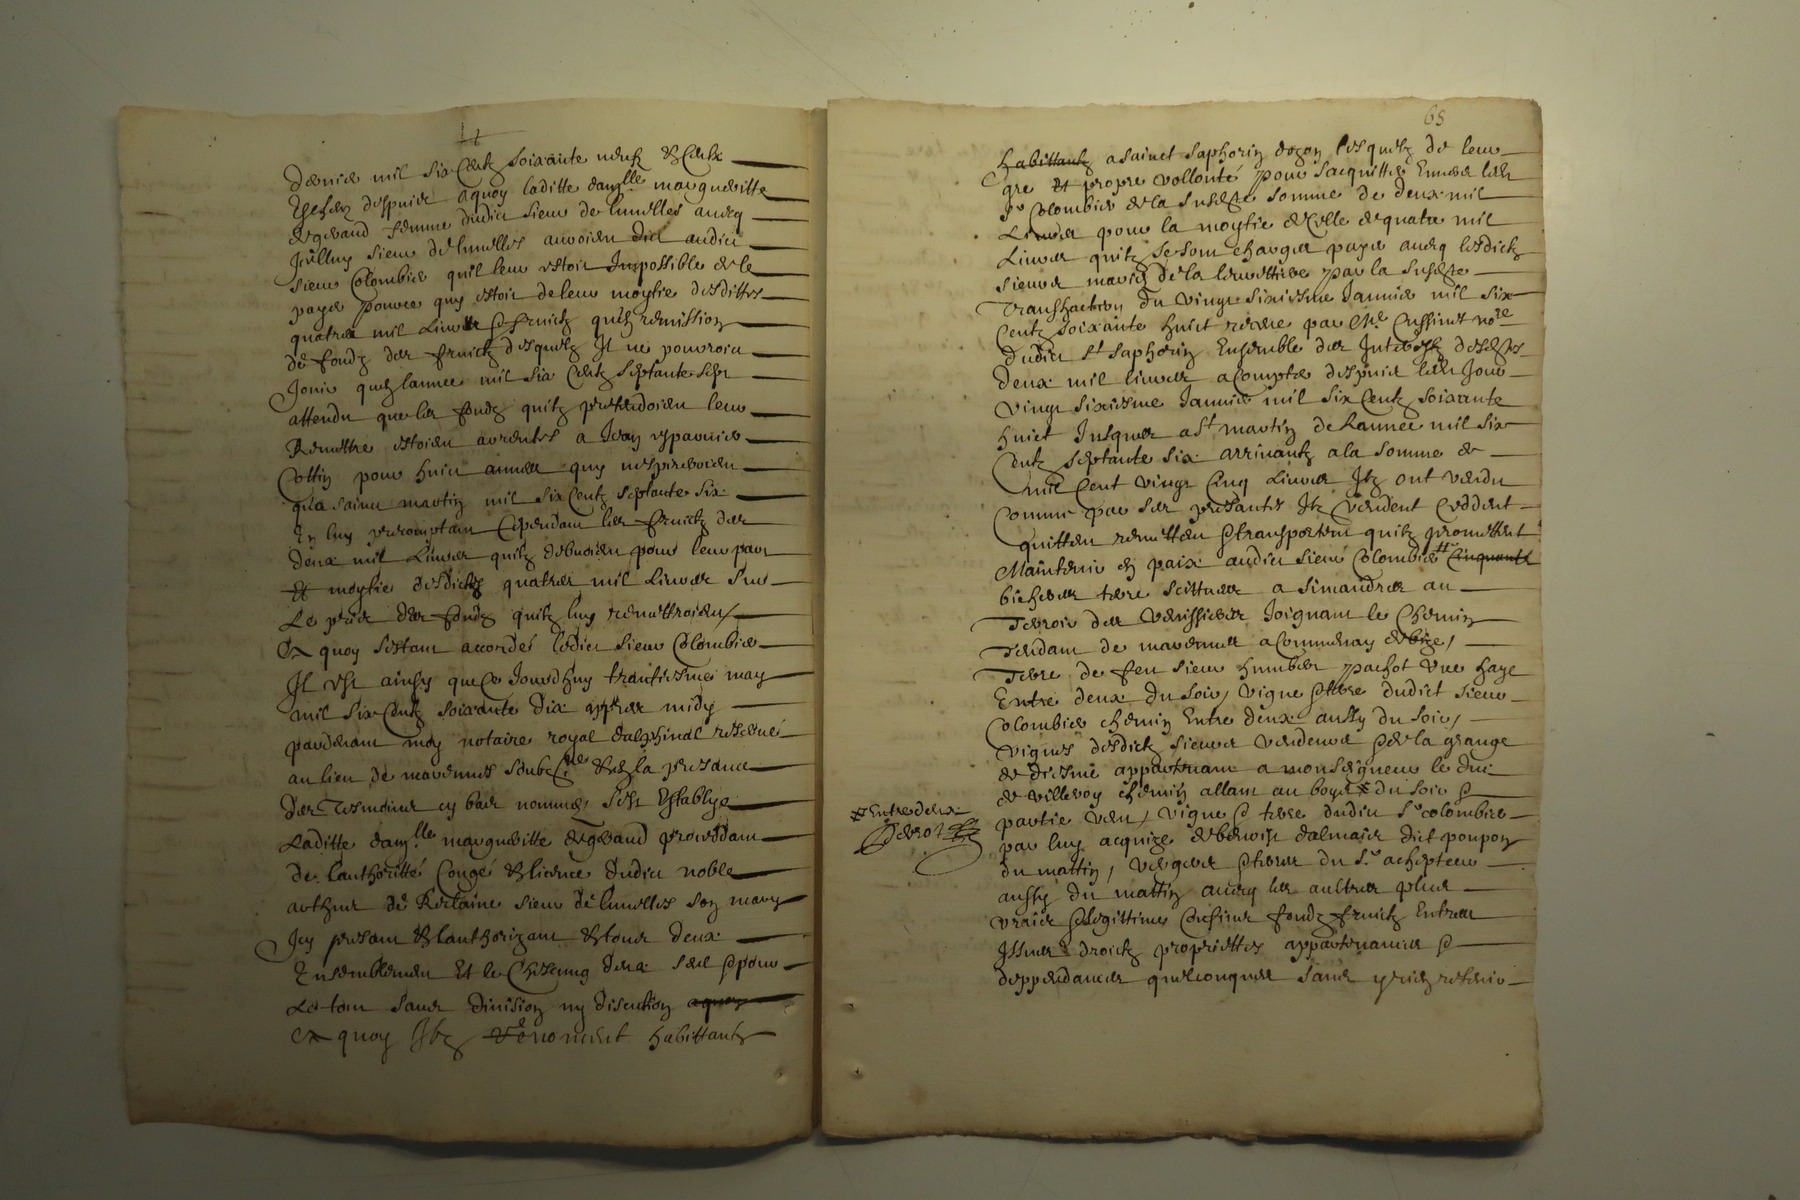 dernier mil six Centz soixante neufz & Centz
despuis aquoy laditte dam.lle margueritte
dergeraud femme dudict sieur de lunelles avecq
Icelluy sieur de lunelles auroient dict audict
sieur Colombier quil leur estoit Impossible de le
payer pour ce quy estoit de leur moytie desdittes
quatres mil Livres & fruictz quen remission
de fondz des fruictz desquelz Il ne pouvroict
Jouir quen lannee mil six Centz septante sept
attendu que les fondz quilz pretendoient leur
Remettre estoient arrentes a Jean
Cottin pour huict annees quy nexpireroient
qua sainct martin mil six Centz septante six
En luy precomptant Cependant les fruictz des
deux mil Livres quilz debvoient pour leur part
Et moytie desdictes quatres mil Livres sur
Le prix des fondz quilz luy remettroient
A quoy sestant accordés ledict sieur Colombier
Il est ainsy que Ce Jourdhuy trantiesme may
mil six Centz soixante dix appres midy
pardevant moy notaire royal dalphinal reservé
au lieu de marennes soubz.ne & en la presance
des Tesmoins cy bas nommes, sest Establye
Laditte dam.lle margueritte dergeraud procedant
de lauthoritté Congé & licence dudict noble
arthur de Relaine sieur de lunelles son mary
Icy present & lauthorizant & tous deux
Ensemblement Et le Chescung deux seul & pour
Le tout sans division ny discution aquoy
A quoy Ilz renoncent habittantz
65
habittantz a sainct saphorin dozon lesquelz de leur
gre Et propre vollonté pour sacquitter Envers led.
sr Colombier de la susd.te somme de deux mil
Livres pour la moytie de Celle de quatre mil
Livres quilz se sont charges payer avecq lesdictz
sieurs maries de la par la susd.te
Transaction du vingt sixiesme Janvier mil six
Centz soixante huict receue par Me Cussinet no.re
dudict st saphorin Ensemble des Interestz desd.tes
deux mil livres a Compter despuis led. Jour
vingt sixiesme Janvier mil six Centz soixante
huict Jusques a st martin de Lannee mil six
Centz septante six arrivantz a la somme de
mil Cent vingt Cinq Livres Ilz ont vendu
Comme par Ses presantes Ilz vendent Ceddent
quittent remettent & transportent quilz promettent
Maintenir en paix audict sieur Colombier Cinquante
bicherees terre scittuees a simandres au
Terroir des verissieres Joignant le Chemin
Tendant de marennes a Communay de bize,
Terre de feu sieur humbert pachot vne haye
Entre deux du soir, vigne & terre dudict sieur
Colombier chemin Entre deux aussy du soir,
vignes desdictz sieurs vendeurs & de la grange
de diesme appartenant a monseigneur le duc
de villeroy chemin allant au boys du soir &
partie vent, vigne & terre dudict sr colombier
par luy acquize de benoist dalmais dict poupon
du mattin, verger & terres du sr achepteur
aussy du mattin avecq les aultres plus
vrais & legittimes Confins fondz fruictz Entrees
Issues droictz propriettes appartenances &
deppendances quelconques sans y rien retenir
Entre deux